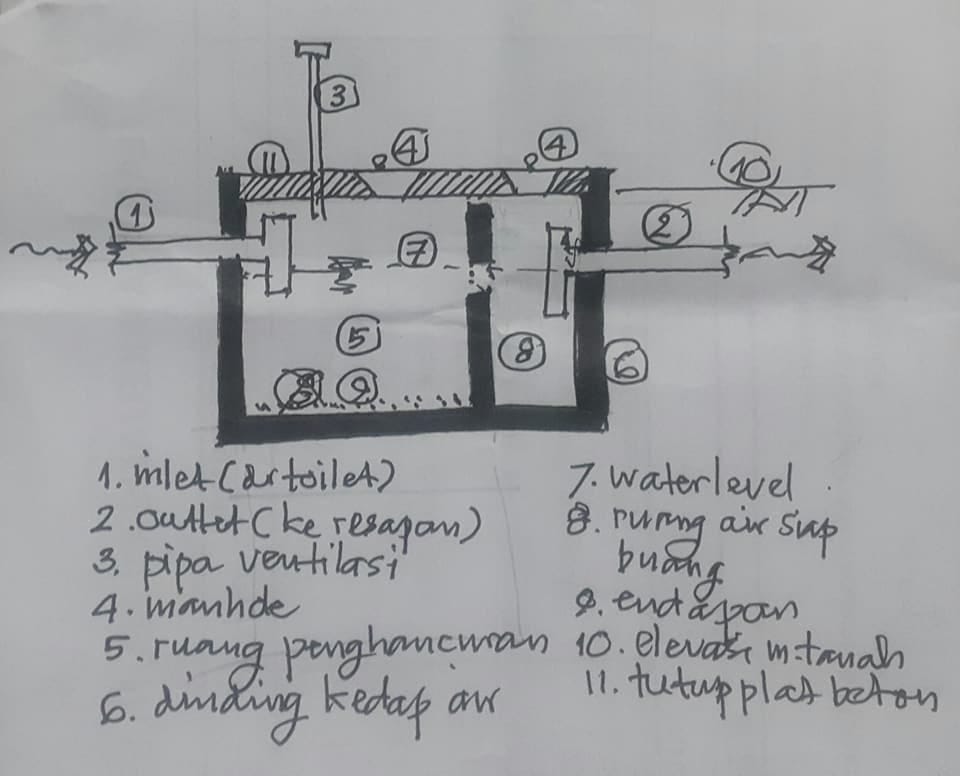 3
11
4
4
10
1
2
7
5
8
6
9
1. inlet (dr toilet)
2. outlet (ke resapan)
3. pipa ventilasi
4. manhole
5. ruang penghancuran
6. dinding kedap air
7. water level
8. ruang air siap
buang
9. endapan
10. elevasi m.tanah
11. tutup plat beton